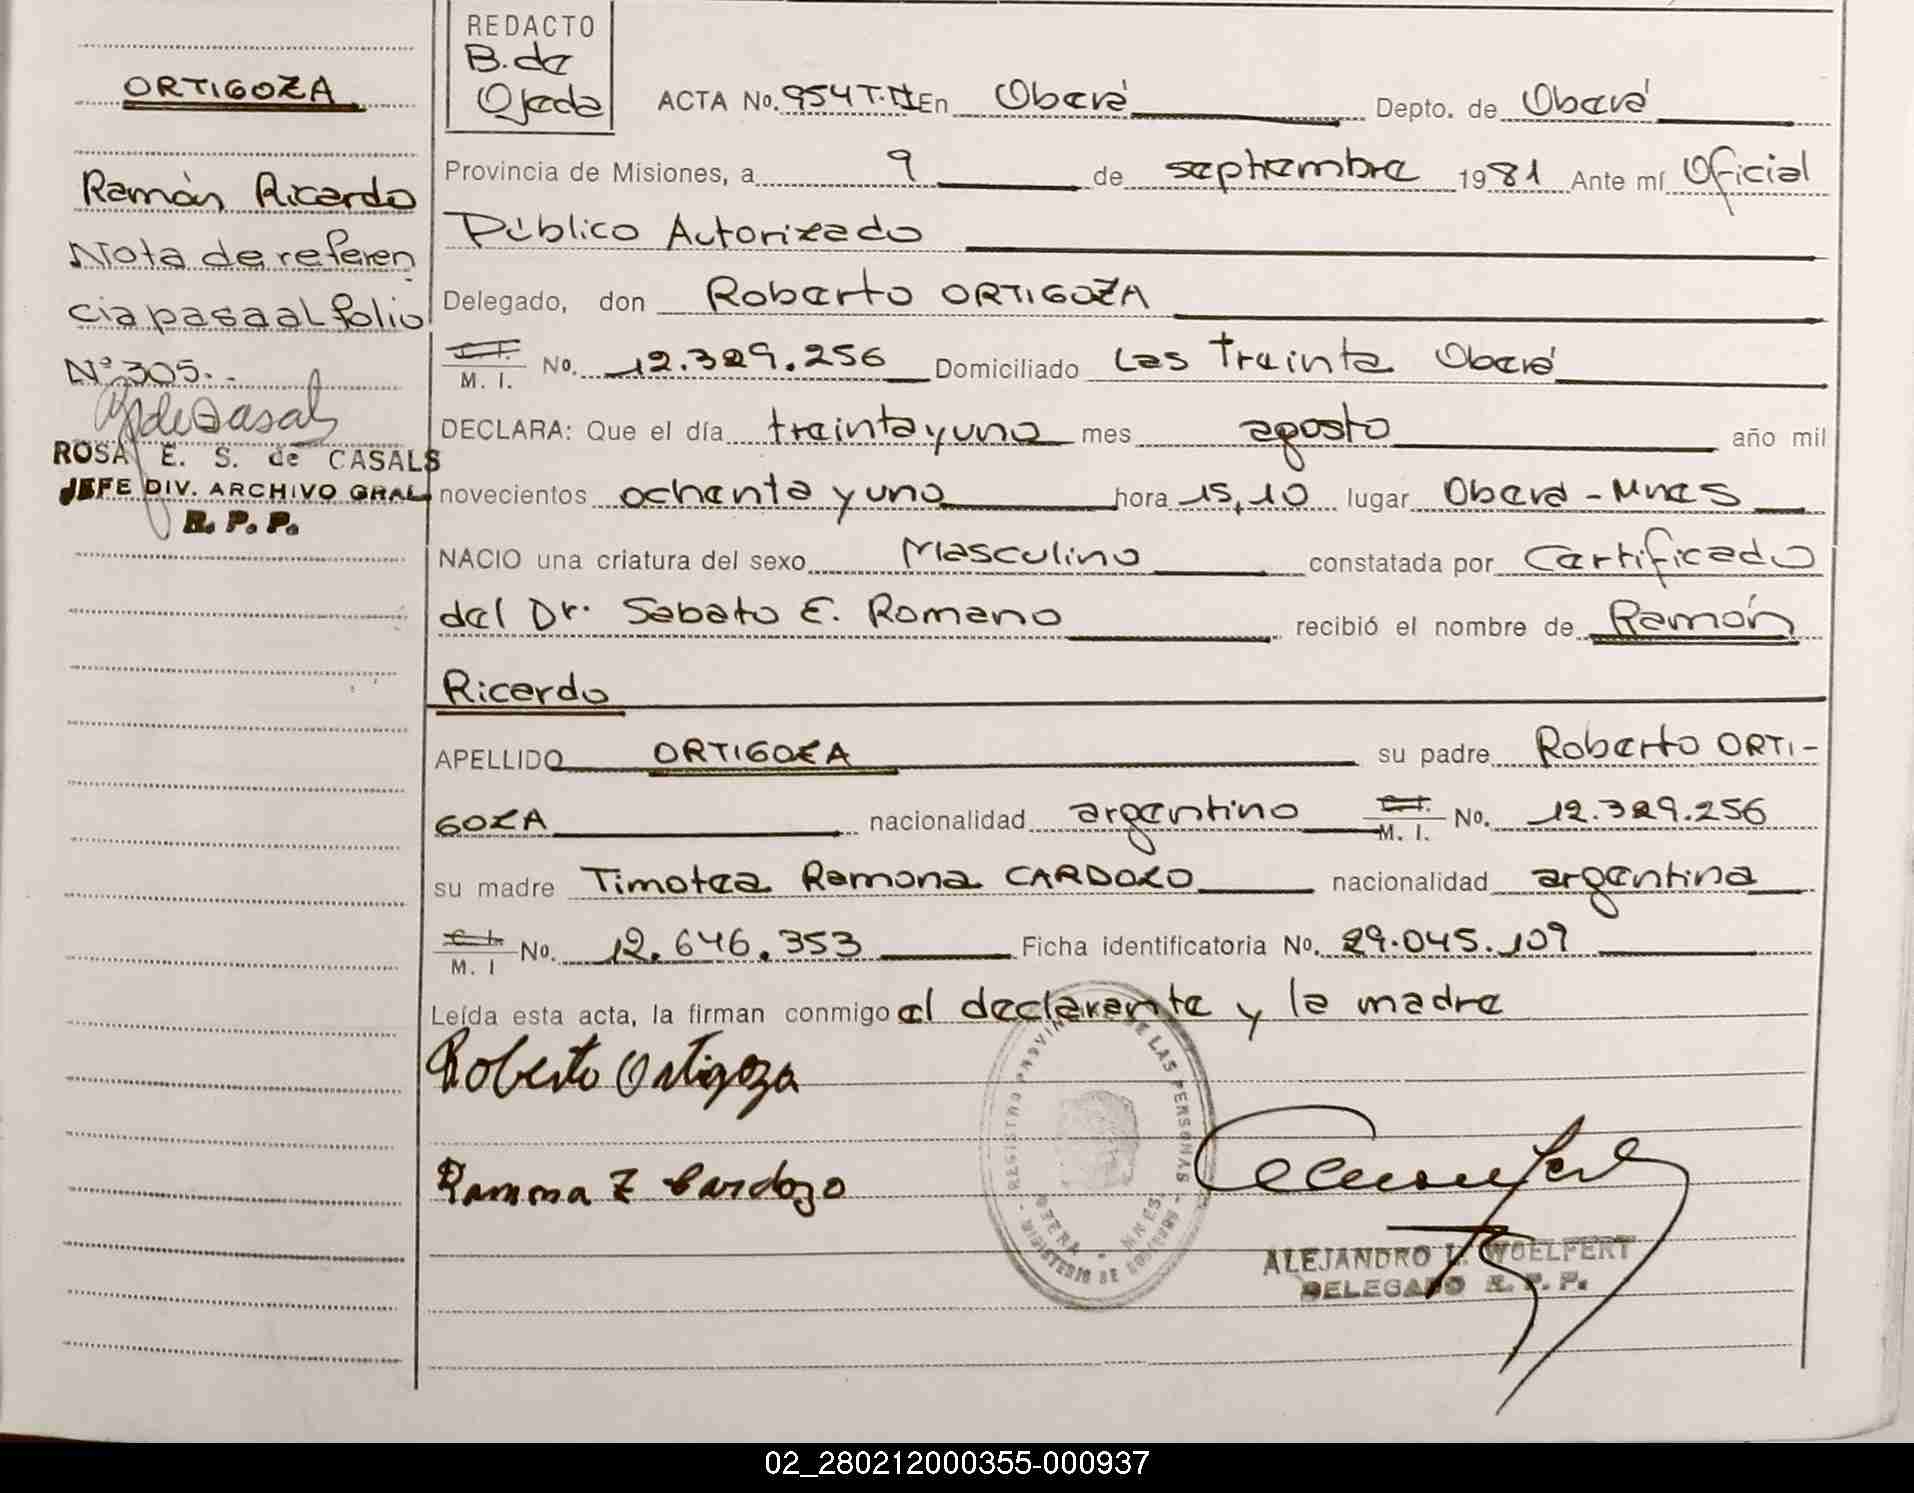 ORTIGOZA
Ramón Ricardo
Nota de referen
cia pasa al folio
Nº 305.
ROSA E. S. de CASALS
JEFE DIV. ARCHIVO GRAL
R. P. P.
REDACTO
B. de
Ojeda
ACTA No. 954 T.II En Oberá Depto. de Oberá
Provincia de Misiones, a 9 de septiembre 1981 Ante mí Oficial
Público Autorizado
Delegado, don Roberto ORTIGOZA
C. I.
M. I. No. 12.329.256 Domiciliado Las Treinta Oberá
DECLARA: Que el día treinta y uno mes agosto año mil
novecientos ochenta y uno hora 15,10 lugar Oberá - Mnes
NACIO una criatura del sexo Masculino constatada por Certificado
del Dr. Sabato E. Romano recibió el nombre de Ramón
Ricardo
APELLIDO ORTIGOZA su padre Roberto ORTI-
GOZA nacionalidad argentino C. I. M. I. No. 12.329.256
su madre Timotea Ramona CARDOZO nacionalidad argentina
C. I.
M. I No. 12.646.353 Ficha identificatoria No. 29.045.109
Leída esta acta, la firman conmigo el declarante y la madre
Roberto Ortigoza
Ramona T Cardozo
REGISTRO PROVINCIAL DE LAS PERSONAS
OBERA - MNES.
MINISTERIO DE GOBIERNO
ALEJANDRO L. WOELFERT
DELEGADO R. P. P.
02_280212000355-000937